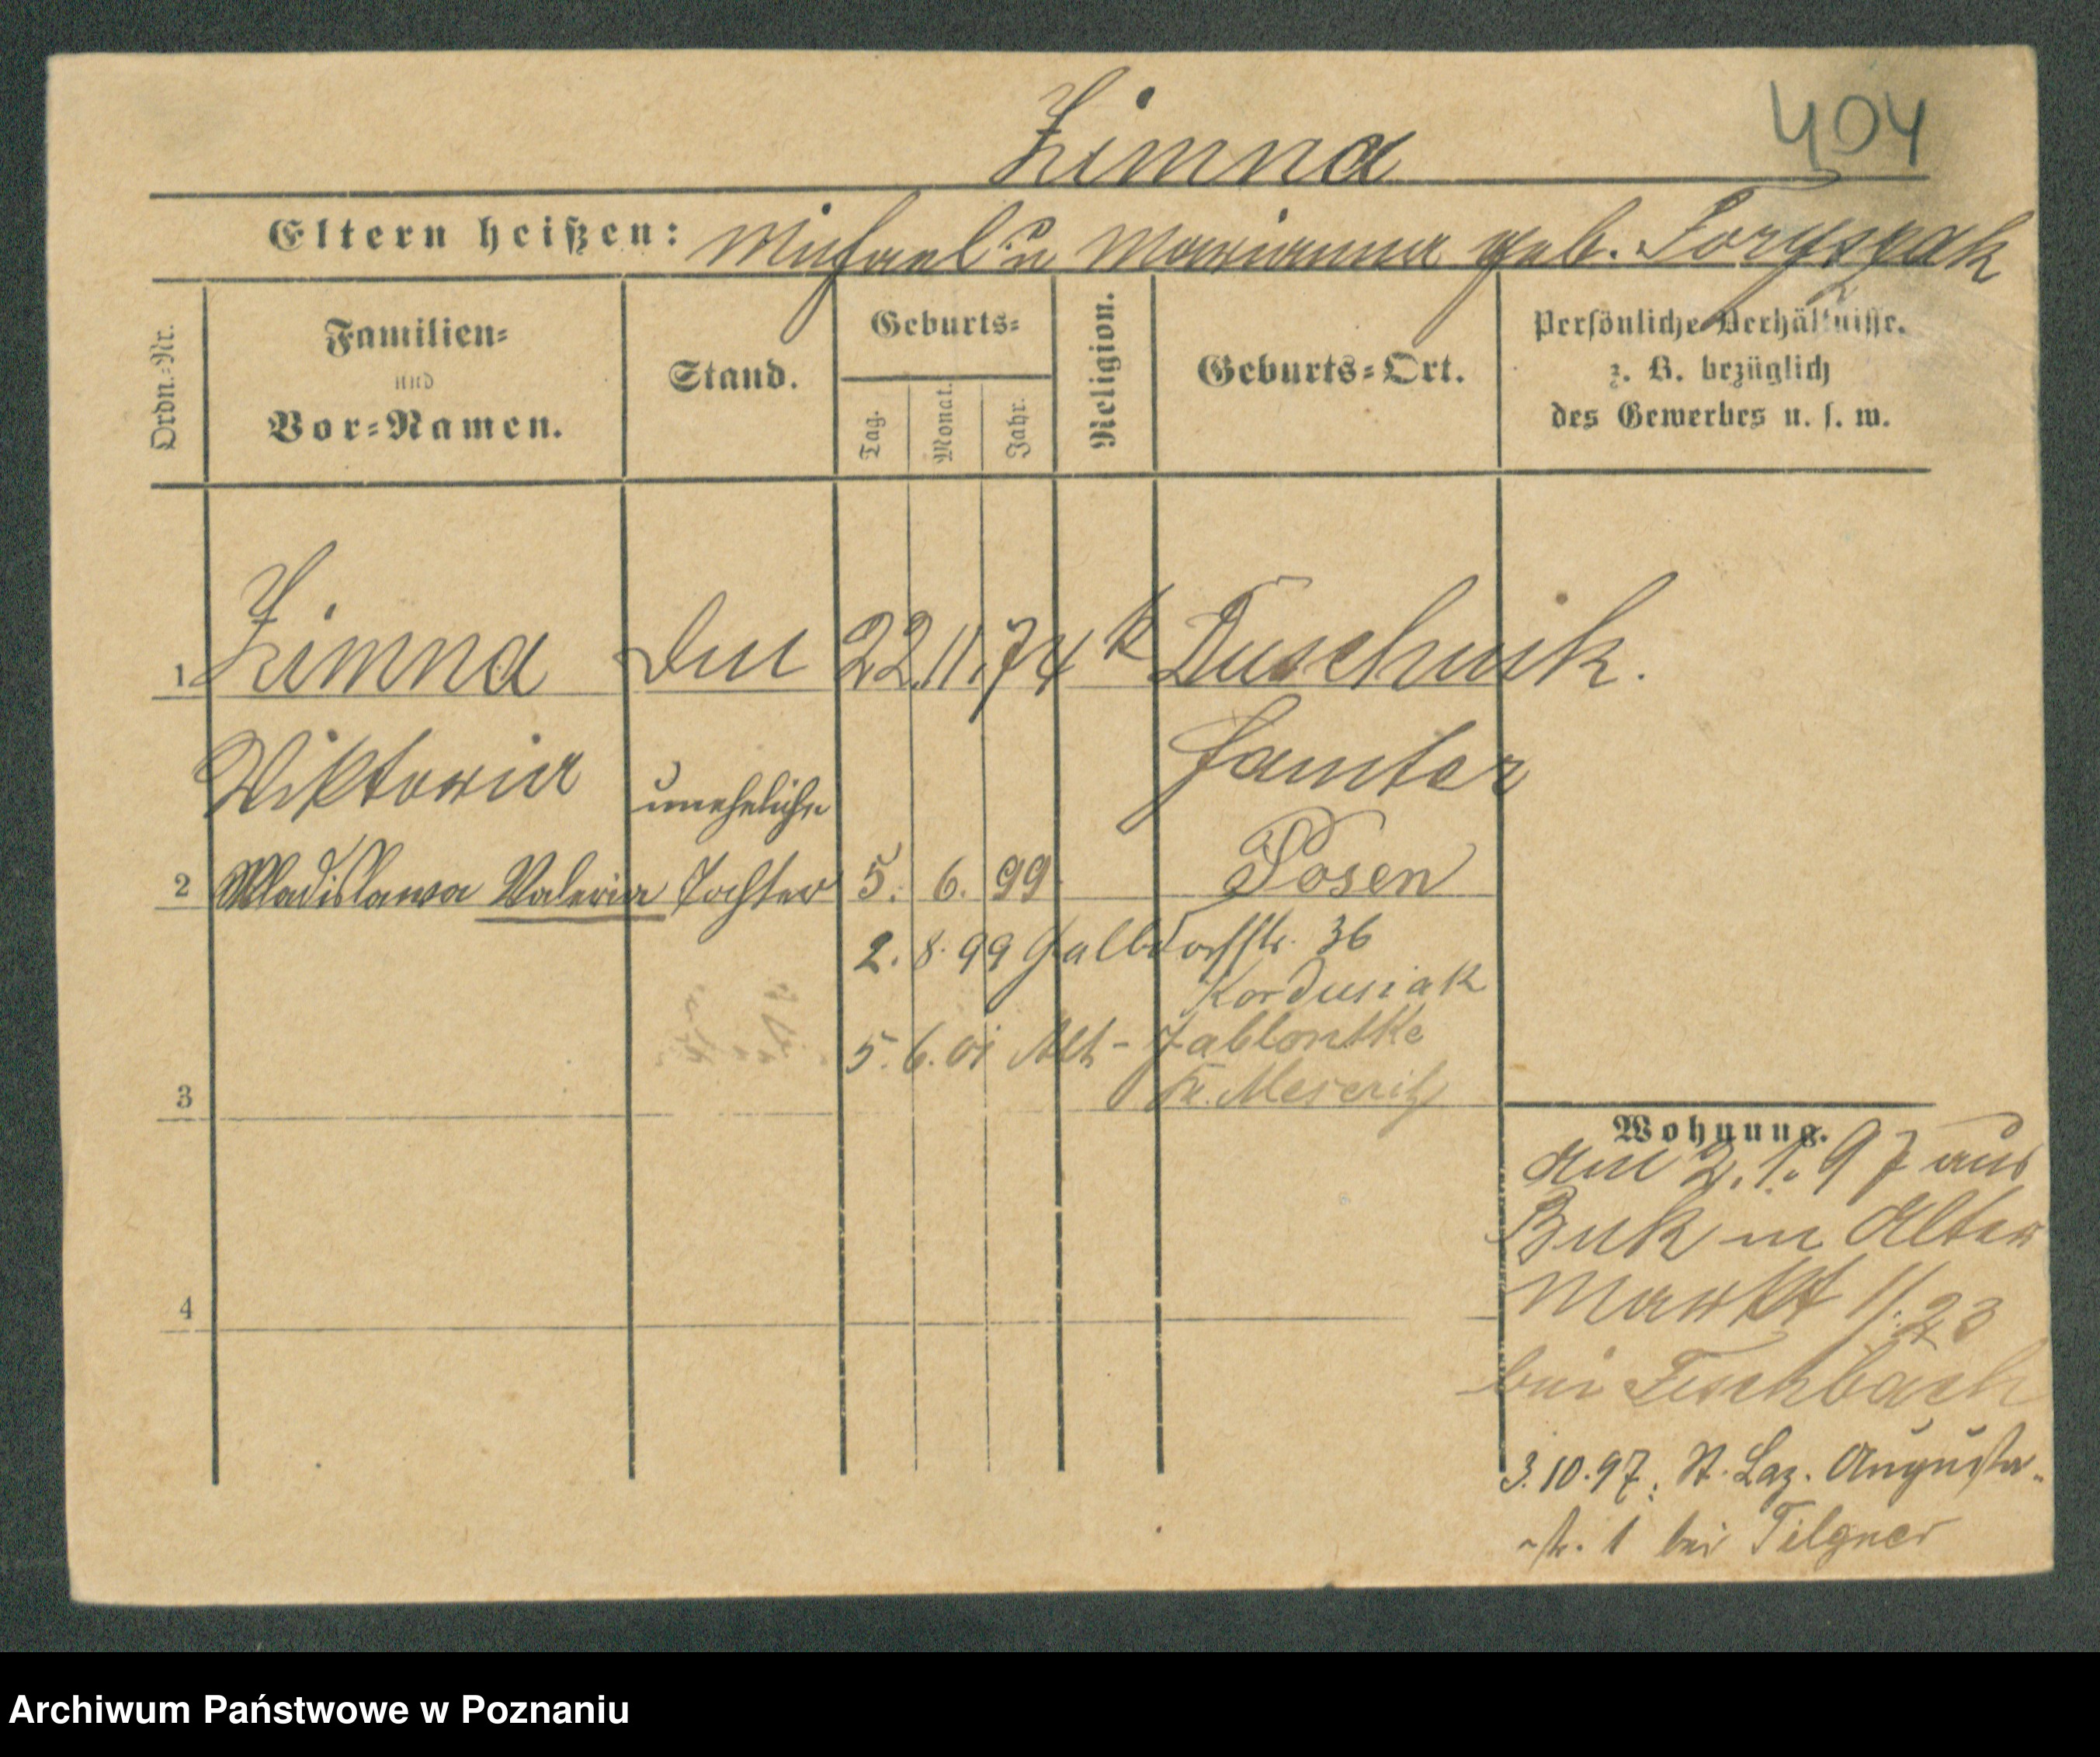 404
Zimna
Eltern heißen: Michael u Marianna geb. Foryszak
Ordn.-Nr.
Familien-
und
Vor-Namen.
Stand.
Geburts-
Tag.
Monat.
Jahr.
Religion.
Geburts-Ort.
Persönliche Verhältnisse.
z. B. bezüglich
des Gewerbes u. s. w.
1 Zimna 22. 11. 74 k Duschnik.
Wiktoria Samter
uneheliche
2 Wladislawa Valeria Tochter 5. 6. 99 Posen
2. 8. 99 Halbdorfstr. 36
Kordusiak
5. 6. 01 Alt-Jablonske
Kr. Meseritz
3
4
Wohnung.
am 2. 1. 97 aus
Buk in Alter
Markt 1/. 23
bei Fischbach
3. 10. 97: St. Laz. Augusta-
-str. 1 bei Tilgner
Archiwum Państwowe w Poznaniu